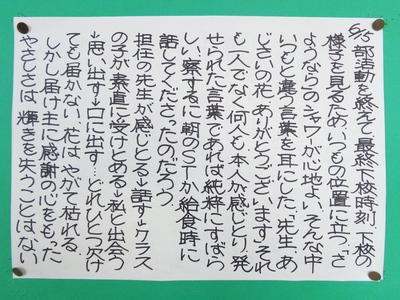 6/5 部活動を終えて最終下校時刻、下校の
様子を見るためいつもの位置に立つ。「さ
ようなら」のシャワーが心地よい。そんな中
いつもと違う言葉を耳にした。「先生、あ
じさいの花、ありがとうございます」それ
も一人でなく何人も。本人が感じとり、発
せられた言葉であれば純粋にすばら
しい。察するに朝のSTか給食時に
話してくださったのだろう。
担任の先生が感じとる→話す→クラス
の子が素直に受けとめる→私と出会う
→思い出す→口に出す…どれひとつ欠け
ても届かない。花はやがて枯れる。
しかし届け主に感謝の心をもった
やさしさは、輝きを失うことはない